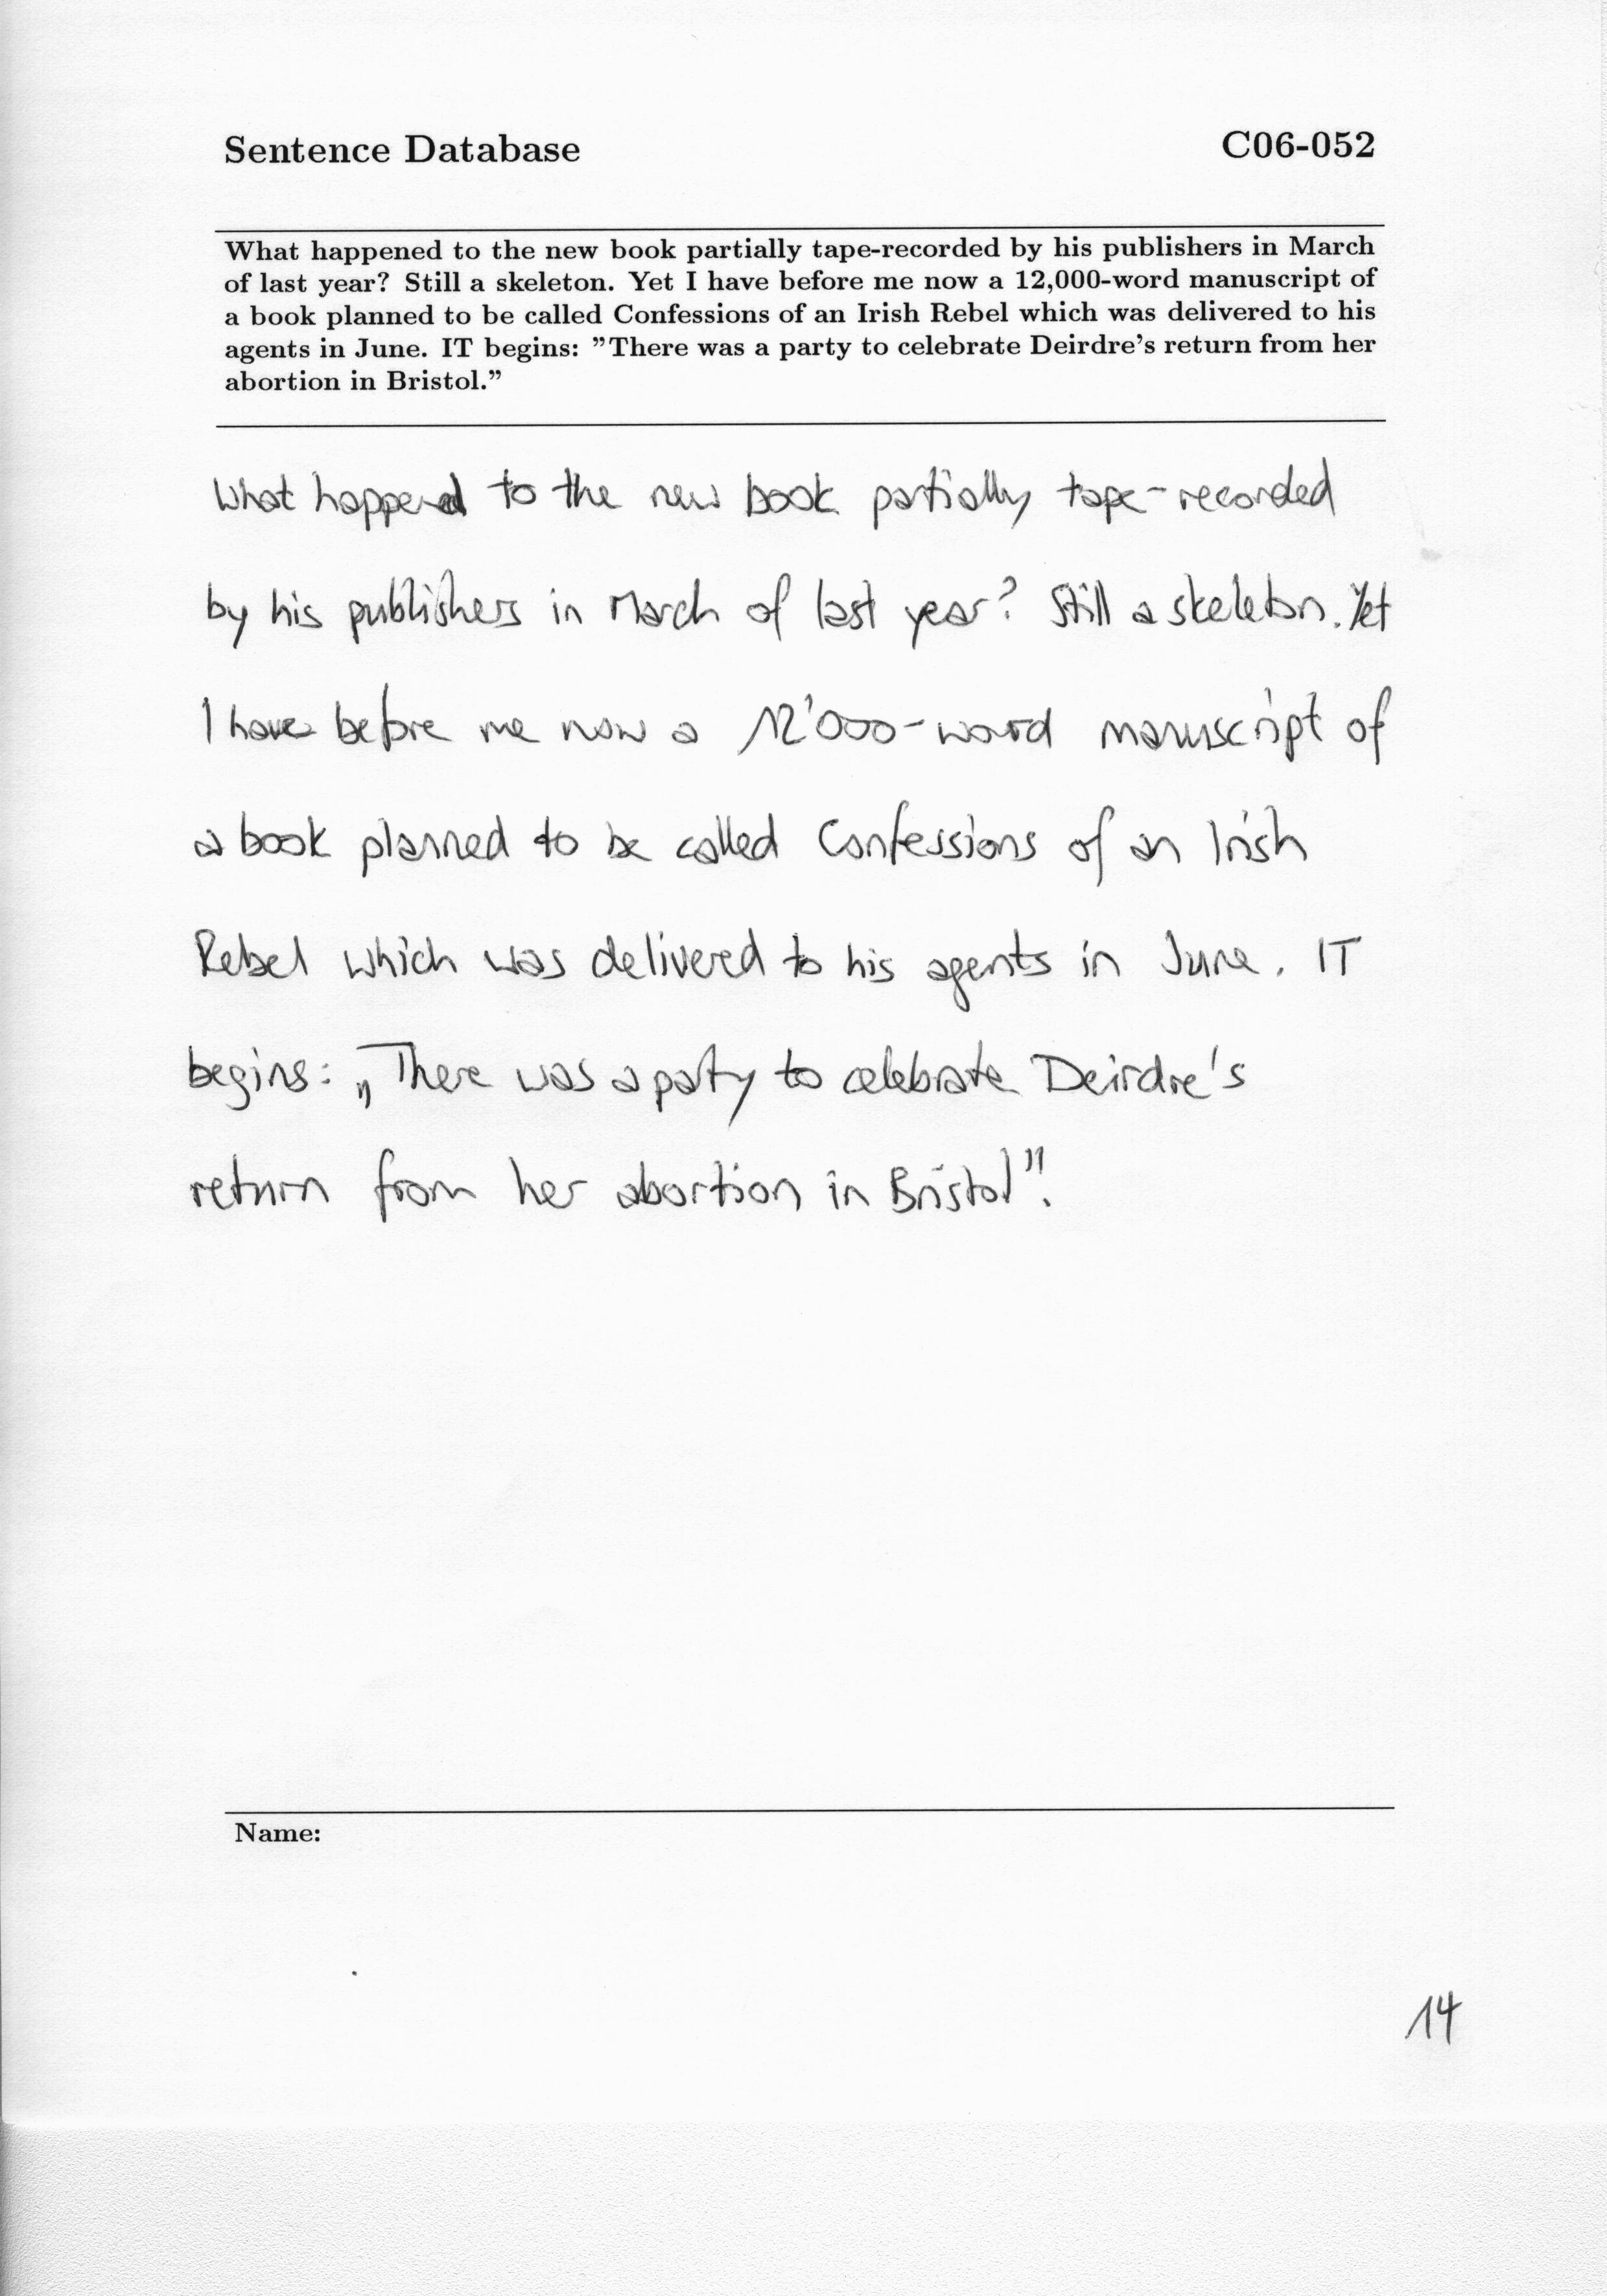 Sentence Database
C06-052
What happened to the new book partially tape-recorded by his publishers in March
of last year? Still a skeleton. Yet I have before me now a 12,000-word manuscript of
a book planned to be called Confessions of an Irish Rebel which was delivered to his
agents in June. IT begins: ”There was a party to celebrate Deirdre’s return from her
abortion in Bristol.”
What happened to the new book partially tape-recorded
by his publishers in March of last year? Still a skeleton. Yet
I have before me now a 12'000-word manuscript of
a book planned to be called Confessions of an Irish
Rebel which was delivered to his agents in June. IT
begins: „There was a party to celebrate Deirdre's
return from her abortion in Bristol".
Name:
14